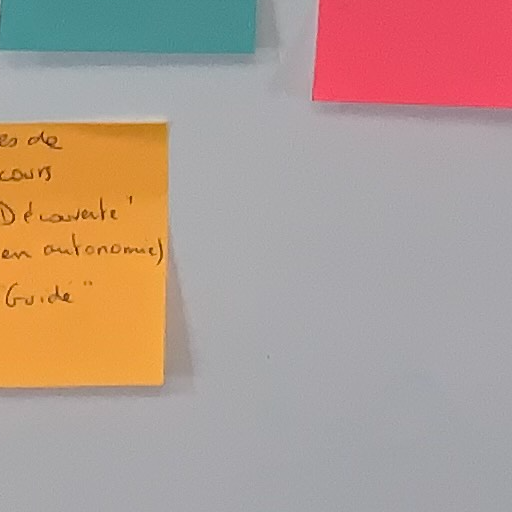 es de
cours
Découverte"
en autonomie)
"Guidé"